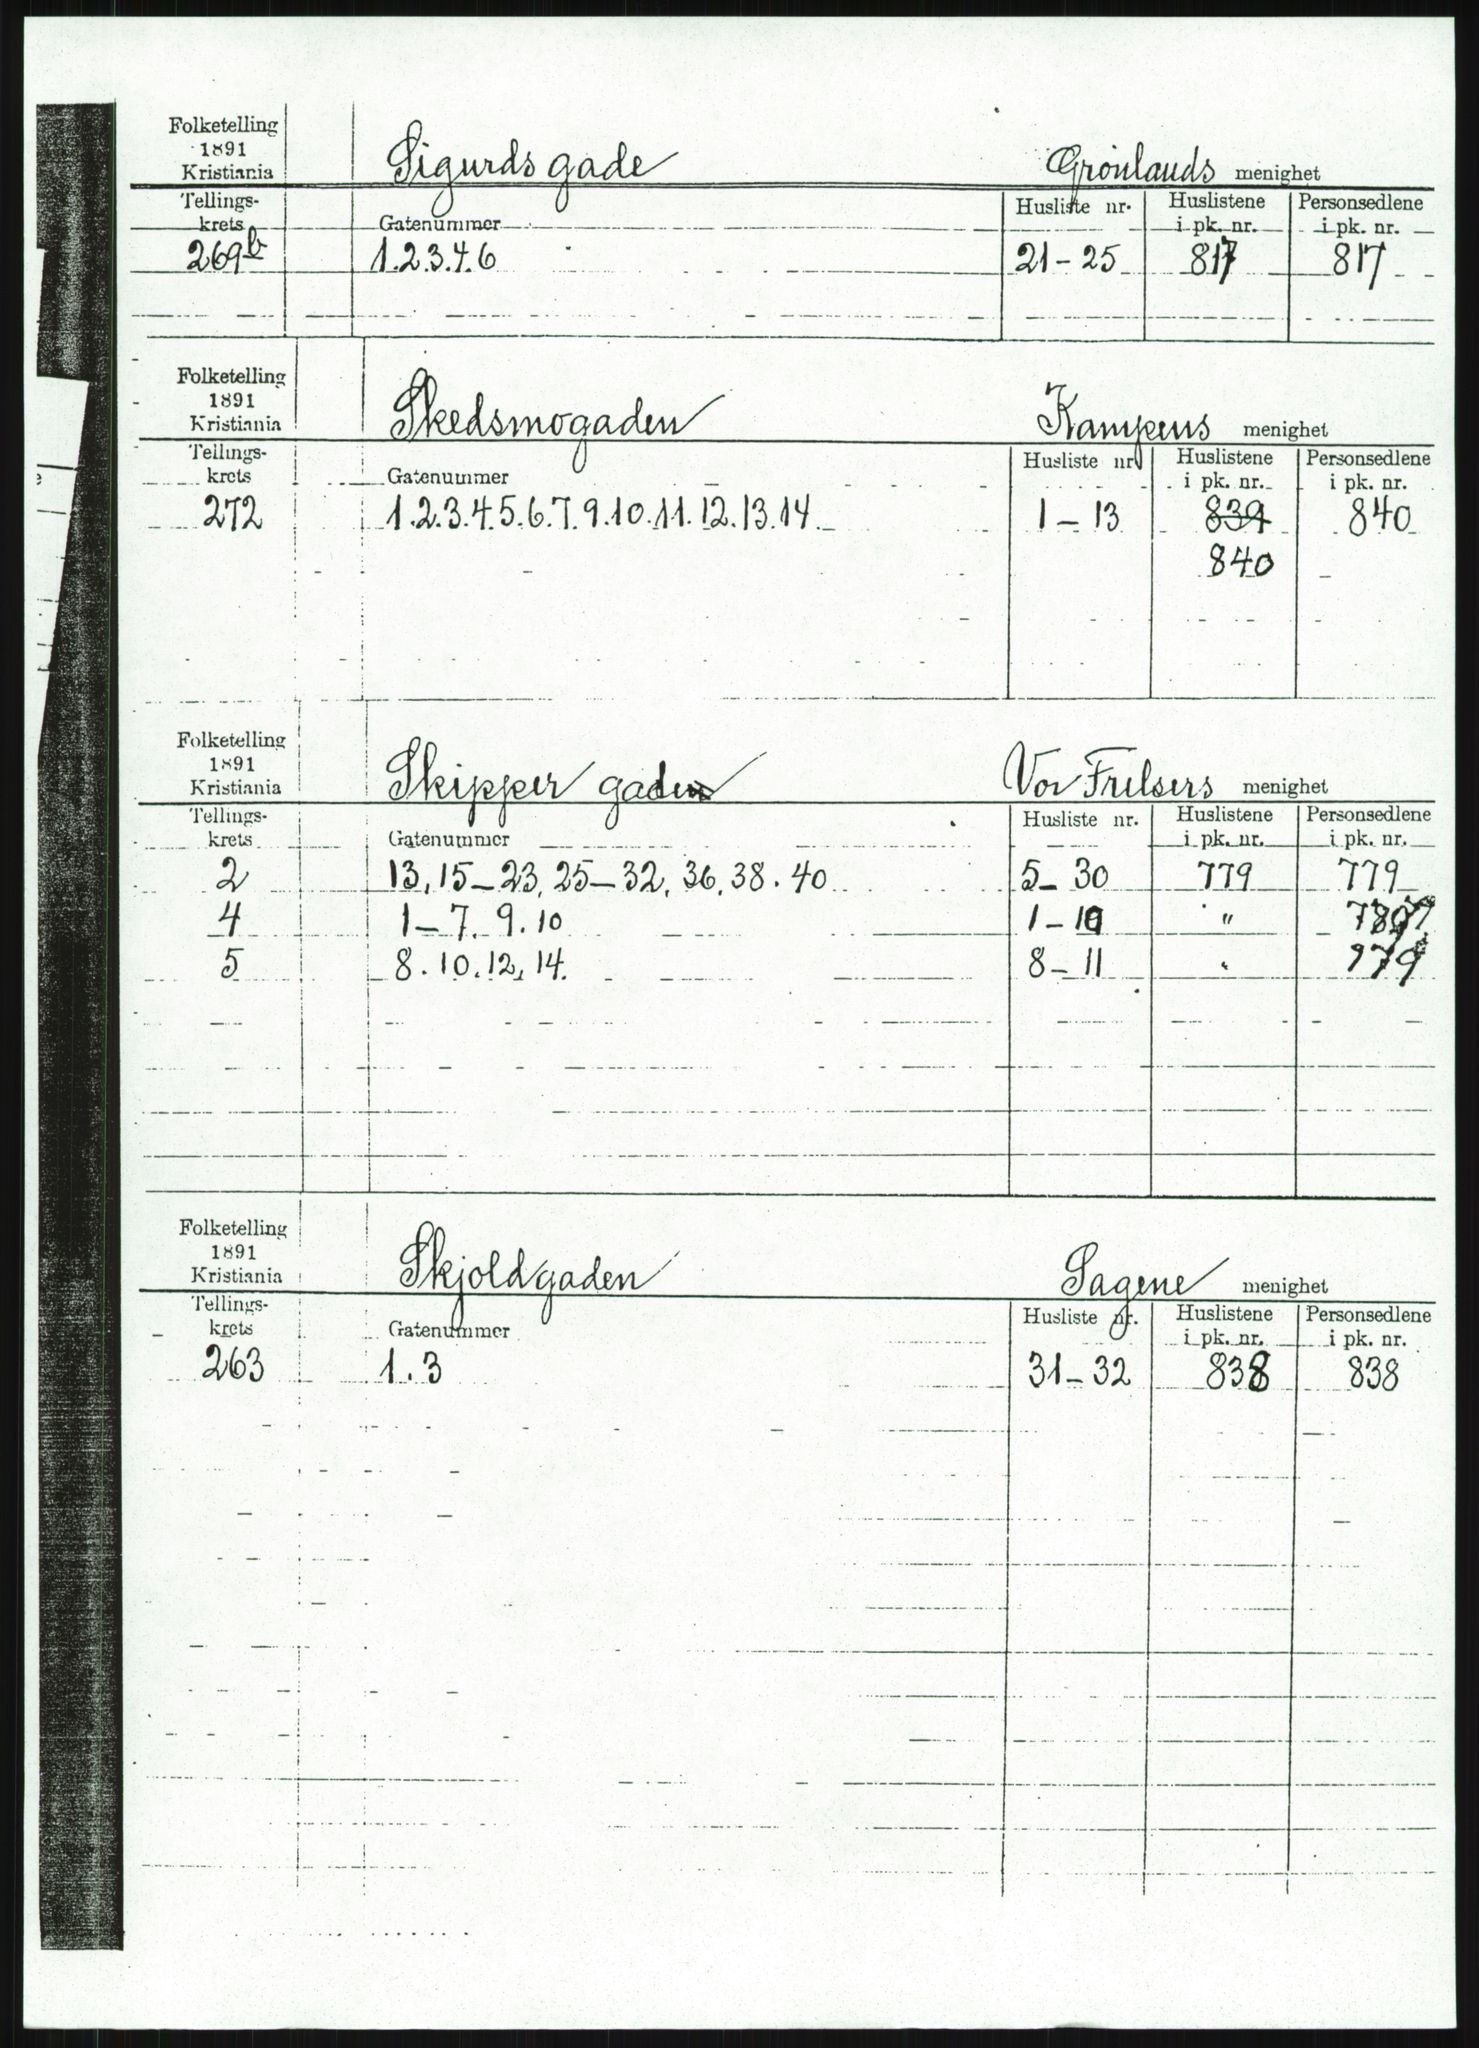 Folketelling
1891
Kristiania
Sigurds gade
Grønlands menighet
Tellings-
krets
Gatenummer
Husliste nr.
Huslistene
i pk. nr.
Personsedlene
i pk. nr.
269b 1.2.3.4.6 21-25 817 817
Folketelling
1891
Kristiania
Skedsmogaden
Kampens menighet
Tellings-
krets
Gatenummer
Husliste nr
Huslistene
i pk. nr.
Personsedlene
i pk. nr.
272 1.2.3.4.5.6.7.9.10.11.12.13.14 1-13 839 840
840
Folketelling
1891
Kristiania
Skipper gaden
Vor Frelsers menighet
Tellings-
krets
Gatenummer
Husliste nr.
Huslistene
i pk. nr.
Personsedlene
i pk. nr.
2 13, 15-23, 25-32, 36, 38. 40 5-30 779 779
4 1-7. 9. 10 1-10 "
5 8. 10. 12, 14. 8-11 "
Folketelling
1891
Kristiania
Skjoldgaden
Sagene menighet
Tellings-
krets
Gatenummer
Husliste nr.
Huslistene
i pk. nr.
Personsedlene
i pk. nr.
263 1.3 31-32 838 838